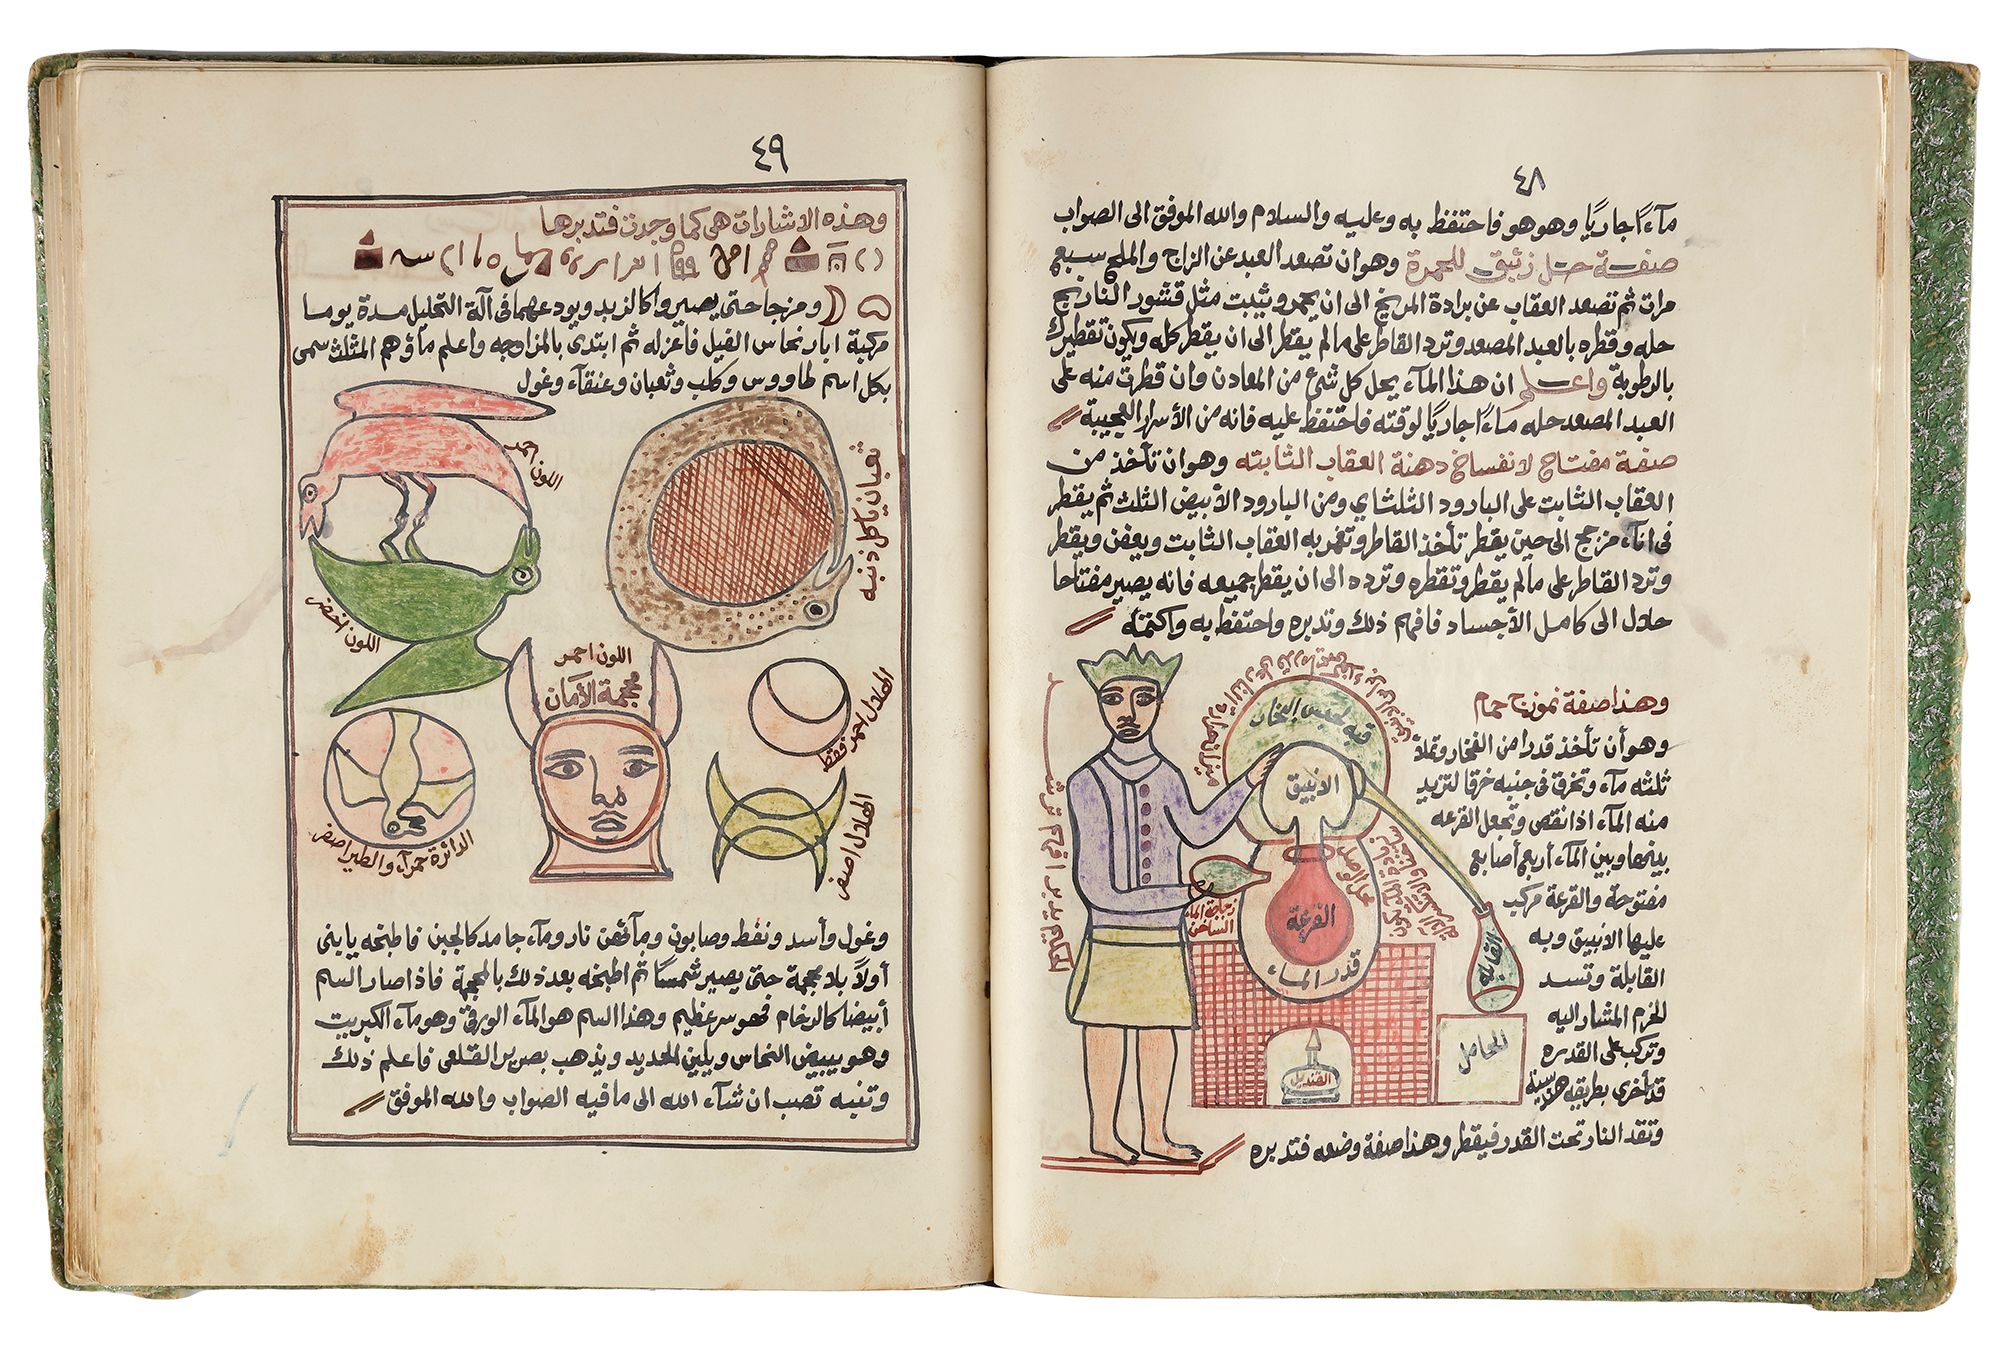 ٤٨
مآءًا جاريًا وهو هو فاحتفظ به وعليه والسلام والله الموفق الى الصواب
صفة حل زئبق للحمرة وهو ان تصعد العبد عن الزاج والملح سبع
مرات ثم تصعد العقاب عن برادة المريخ الى ان يحمر ويثبت مثل قشور النارنج
حله وقطره بالعبد المصعد وترد القاطر على مالم يقطر الى ان يقطر كله ويكون تقطيرك
بالرطوبة واعلم ان هذا المآء يحل كل شئ من المعادن وان قطرت منه على
العبد المصعد حله مآءًا جاريًا لوقته فاحتفظ عليه فانه من الأسرار العجيبة
صفة مفتاح لانفساخ دهنة العقاب الثابته وهو ان تأخذ من
العقاب الثابت على البارود الثلثاي ومن البارود الأبيض الثلث ثم يقطر
فى انآء مزجج الى حين يقطر تأخذ القاطر وتغمر به العقاب الثابت ويعفن ويقطر
وترد القاطر على مالم يقطر وتقطره وتردد الى ان يقطر جميعه فانه يصير مفتاحا
حلال الى كامل الأجساد فافهم ذلك وتدبره واحتفظ به واكتمه
وهذا صفة نموذج حمام
وهو أن تأخذ قدرا من الفخار وتملأ
ثلثه مآء وتخرق فى جنبه خرقا لتزيد
منه المآء اذا نقص وتجعل القرعه
بينها وبين المآء أربع أصابع
مفتوحة والقرعة مركب
عليها الانبيق وبه
القابلة وتسد
الخرم المشار اليه
وتركب على القدره
قد أخرى بطريقه هندسية
وتقد النار تحت القدر فيقطر وهذا صفة وضعه فتدبره
قبه لحبس البخار
الانبيق
القرعة
القابلة
زجاجة الماء
الساخن
قدر الماء
الحامل
القنديل
٤٩
وهذه الاشارات هى كما وجدت فتدبرها
ومزجا حتى يصيروا كالزبد ويودعهما فى آلة التحليل مدة يوما
مركبة ابار نحاس الفيل فاعزله ثم ابتدى بالمزاوجه واعلم مآؤهم المثلث سمى
بكل اسم طاووس وكلب وثعبان وعنقآء وغول
اللون احمر
ثعبان يأكل ذنبه
اللون اخضر
اللون احمر
جمجمة الأمان
الهلال احمر فقط
الدائرة حمرآء والطير اصفر
الهلال اصفر
وغول وأسد ونفط وصابون ومآئهن نار ومآء جامد كالجبن فاطبخه يا بنى
أولاً بلا جمجمة حتى يصير شمسًا ثم اطبخه بعد ذلك بالجمجمة فاذا صار السم
أبيضا كالرخام فهو سر عظيم وهذا السم هو المآء الورقى وهو مآء الكبريت
وهو يبيض النحاس ويلين الحديد ويذهب بصرير القلعى فاعلم ذلك
وتنبه تصب ان شآء الله الى ما فيه الصواب والله الموفق